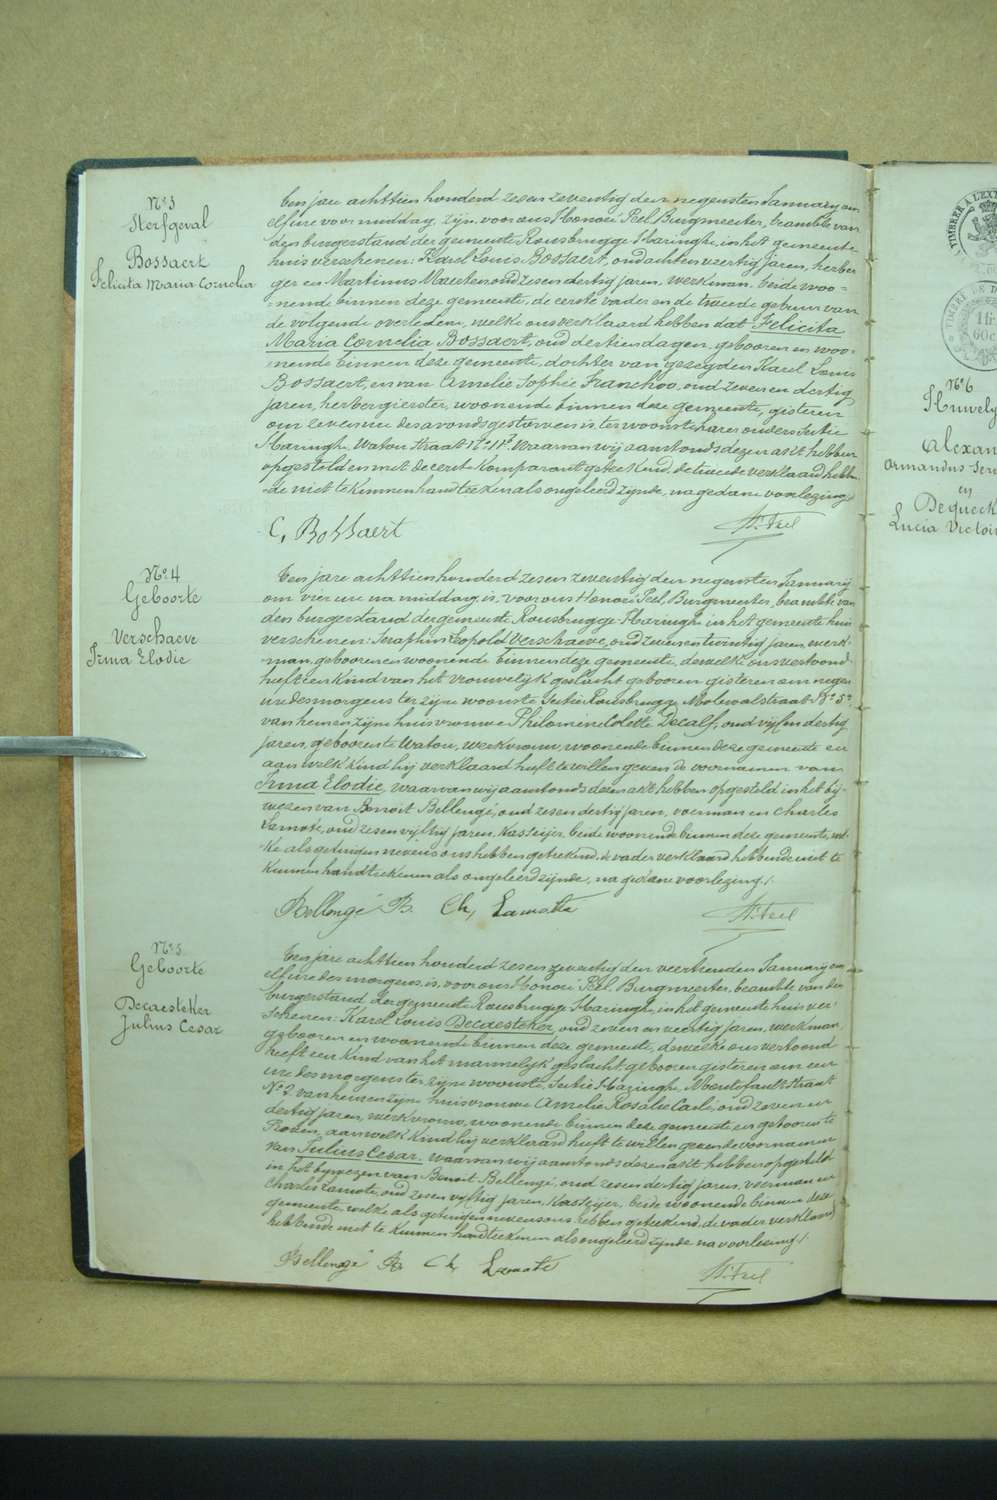 Nº 3
Sterfgeval
Bossaert
Felicita Maria Cornelia
Een jare achttien honderd zes en zeventig den negensten January om
elf ure voor middag, zijn, voor ons Honoré Peel, Burgmeester, beambte van
den burgerstand der gemeente Rousbrugge-Haringhe, in het gemeente
huis verschenen: Karel Louis Bossaert, oud achten veertig jaren, herber
ger en Martinus Maerten oud zes en dertig jaren, werkman, beide woo-
nende binnen deze gemeente, de eerste vader en de tweede gebuur van
de volgende overledene, welke ons verklaard hebben dat Felicita
Maria Cornelia Bossaert, oud dertien dagen, gebooren en woo-
nende binnen deze gemeente, dochter van gezegden Karel Louis
Bossaert, en van Amelie Sophie Franchoo, oud zeven en dertig
jaren, herbergierster, woonende binnen deze gemeente, gisteren
om zeven ure des avonds gestorven is, ter woonste harer ouders Sectie
Haringhe, Watou straat Nº 11ª. Waarvan wij aanstonds dezen act hebben
opgesteld en met de eerste komparant geteekend, de tweede verklaard hebben
de niet te kunnen handteeken als ongeleerd zijnde, na gedane voorlezing./.
C, Bossaert
H. Peel
Nº 4
Geboorte
Verschaeve
Irma Elodie
Een jare achttien honderd zes en zeventig den negensten January
om vier ure na middag, is, voor ons Honoré Peel, Burgmeester, beambte van
den burgerstand der gemeente Rousbrugge-Haringhe in het gemeente huis
verschenen: Seraphin Leopold Verschaeve, oud zeven en twintig jaren, werk-
man, gebooren en woonende binnen deze gemeente, dewelke ons vertoond
heeft een kind van het vrouwelijk geslacht gebooren gisteren om negen
ure des morgens ter zijne woonste Sectie Rousbrugge Molewalstraat Nº 5ª
van hem en zijne huisvrouwe Philomine Colette Decalf, oud vijf en dertig
jaren, geboren te Watou, werkvrouw, woonende binnen deze gemeente en
aan welk kind hij verklaard heeft te willen geven de voornamen van
Irma Elodie, waarvan wij aanstonds dezen act hebben opgesteld in het bij-
wezen van Benoit Bellengé, oud zes en dertig jaren, voerman en Charles
Lamote, oud zes en vijftig jaren, Kasseijer, beide woonende binnen deze gemeente, wel-
ke als getuigen nevens ons hebben geteekend, de vader verklaard hebbende niet te
kunnen handteekenen als ongeleerd zijnde, na gedane voorlezing./.
Bellengé B. Ch, Lamote
H. Peel
Nº 5
Geboorte
Decaesteker
Julius Cesar
Een jare achttien honderd zes en zeventig den veertienden January om
elf ure des morgens, is, voor ons Honoré Peel, Burgmeester, beambte van den
burgerstand der gemeente Rousbrugge-Haringhe, in het gemeente huis ver-
schenen: Karel Louis Decaesteker, oud zeven en veertig jaren, werkman,
gebooren en woonende binnen deze gemeente, dewelke ons vertoond
heeft een kind van het mannelijk geslacht, gebooren gisteren om een
ure des morgens ter zijne woonste, Sectie Haringhe, Meretefaultstraat
Nº 2, van hem en zijne huisvrouwe Amelie Rosalie Carle, oud zeven en
dertig jaren, werkvrouw, woonende binnen deze gemeente en geboren te
Proven, aan welk kind hij verklaard heeft te willen geven de voornamen
van Julius Cesar. waarvan wij aanstonds dezen act hebben opgesteld
in het bijwezen van Benoit Bellengé, oud zes en dertig jaren, voerman en
Charles Lamote, oud zes en vijftig jaren, Kasseijer, beide woonende binnen deze
gemeente, welke als getuigen nevens ons hebben geteekend, de vader verklaard
hebbende niet te kunnen handteekenen als ongeleerd zijnde na voorlezing./.
Bellengé B. Ch, Lamote
H. Peel
Nº 6
Huwely
Alexan
Armandus Ser
en
Dequeck
Lucia Victoi